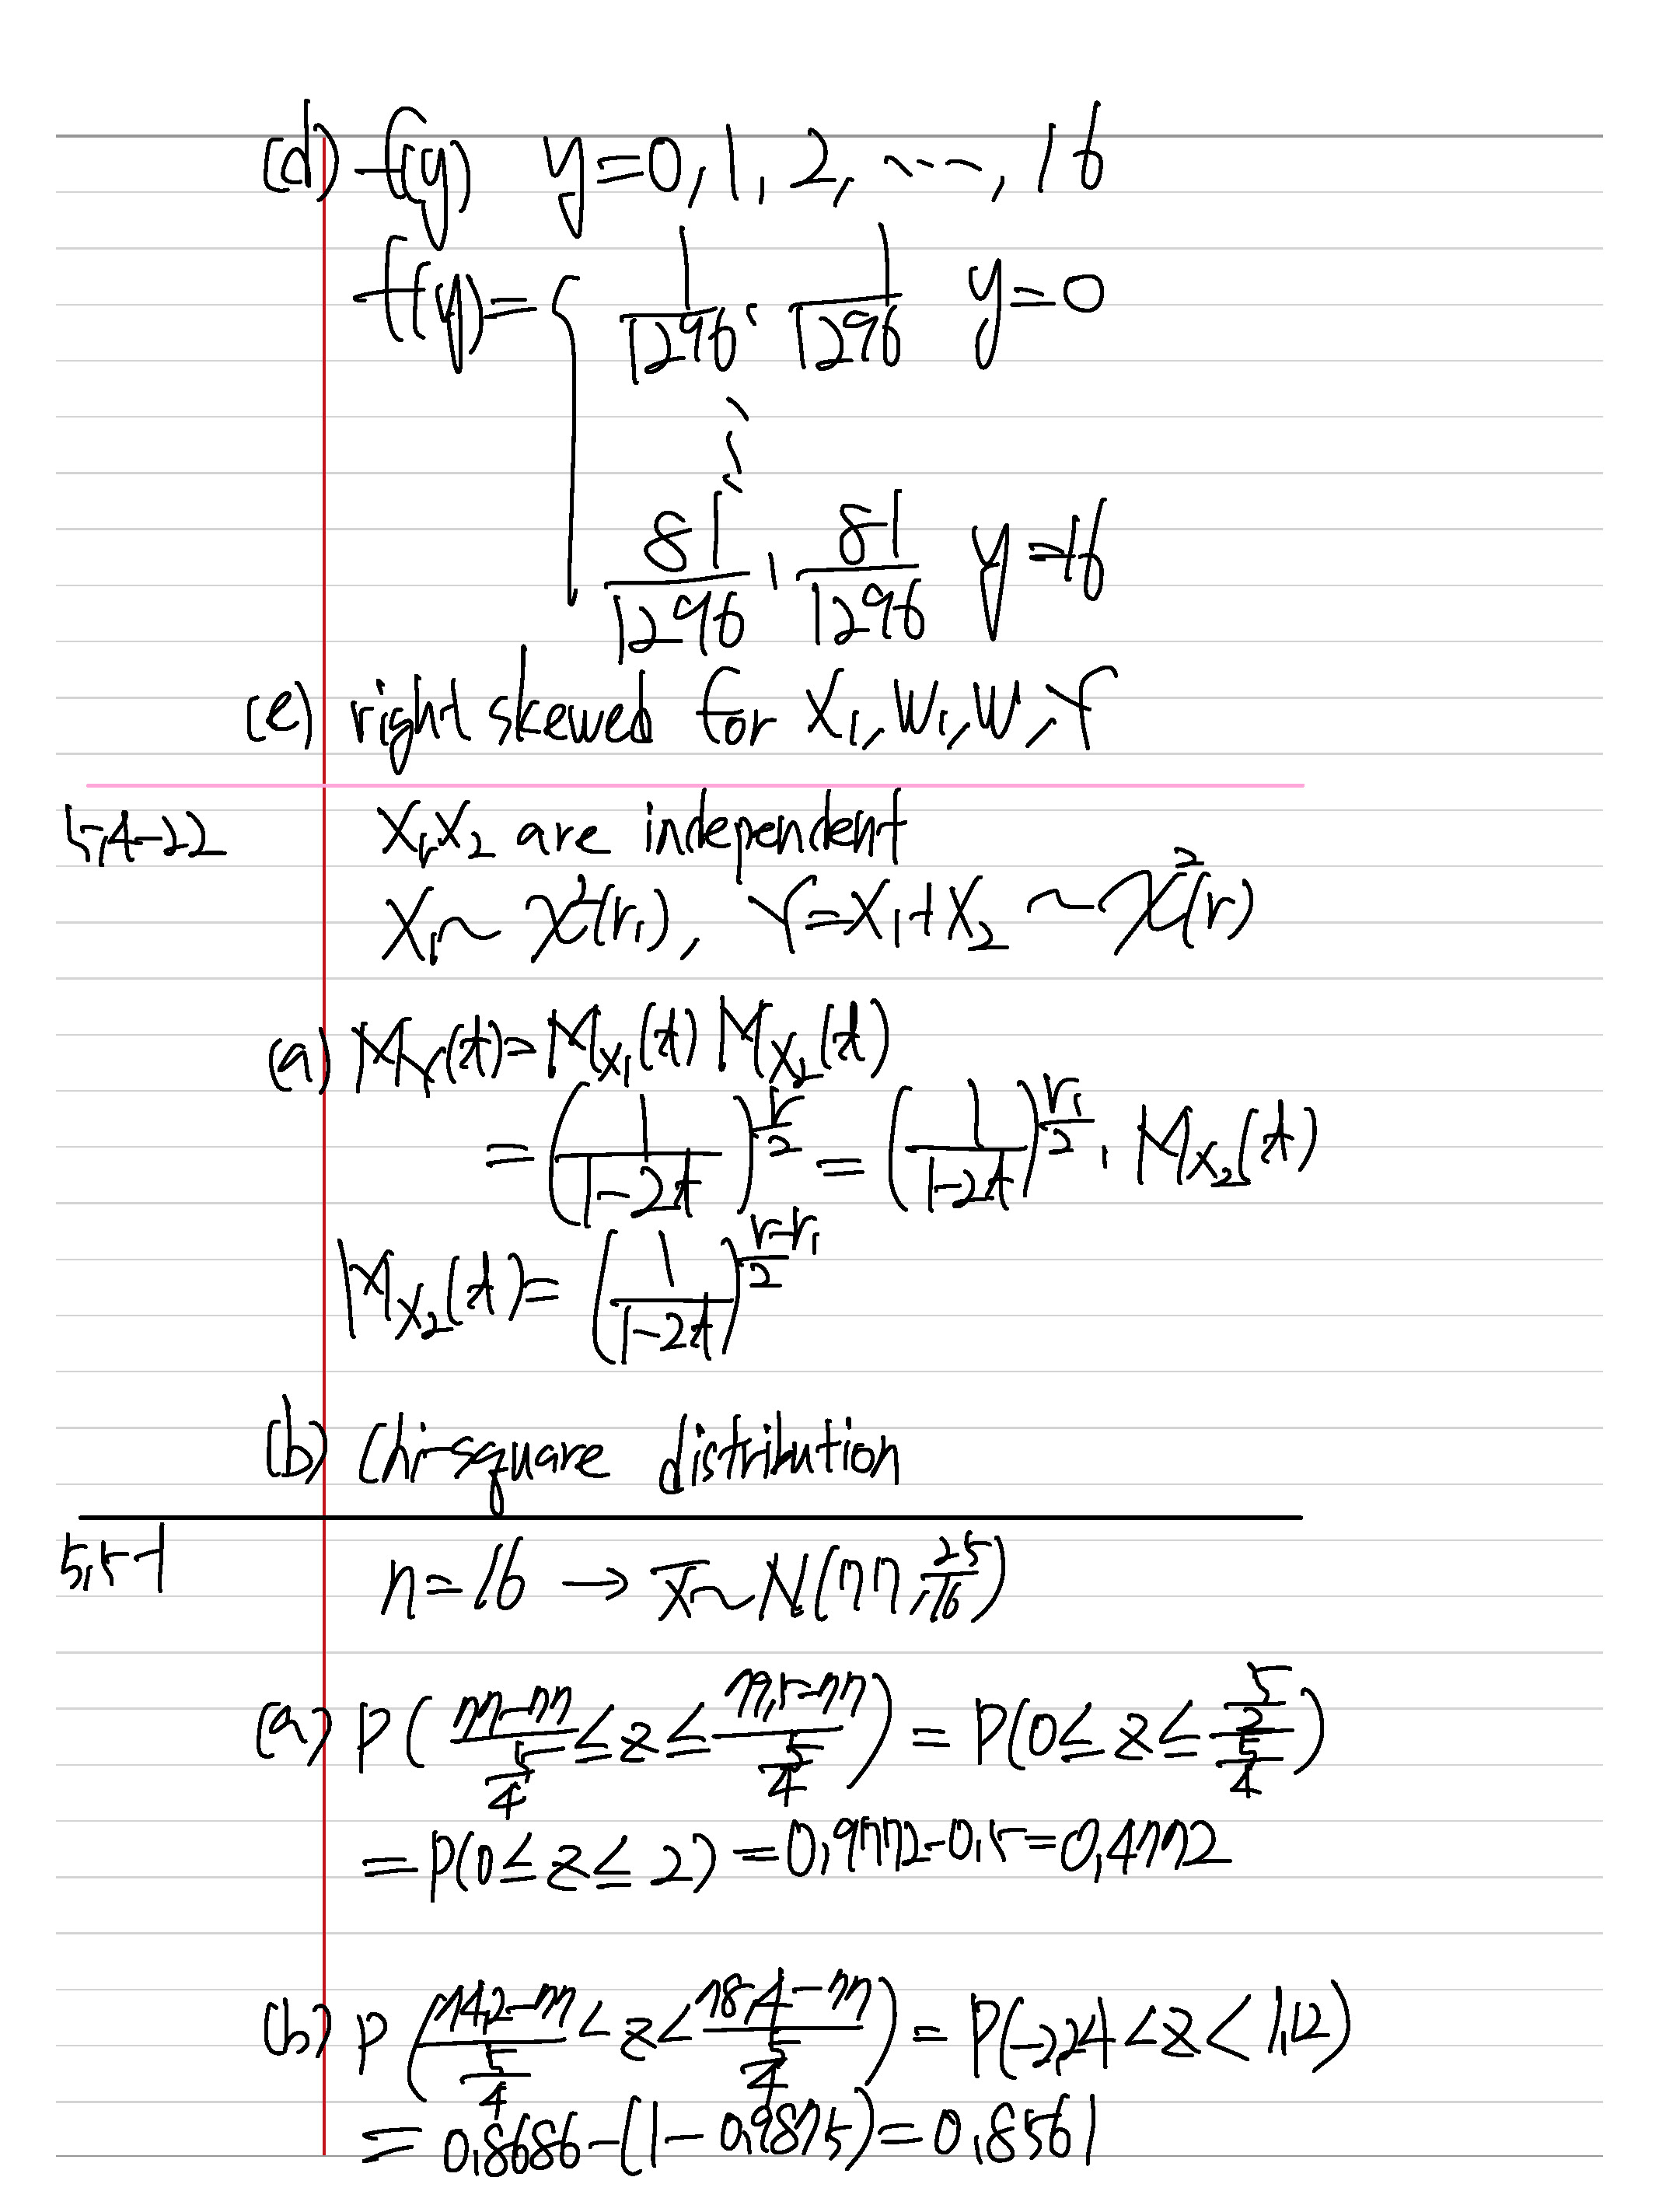 (d) f(y) y=0, 1, 2, ⋯, 16
f(y)= { 1/1296 · 1/1296 y=0
⋮
81/1296 · 81/1296 y=16
(e) right skewed for X₁, W₁, W, Y
5.4-22 X₁, X₂ are independent
X₁ ~ χ²(r₁), Y=X₁+X₂ ~ χ²(r)
(a) M_Y(t)= M_X₁(t) M_X₂(t)
= (1/(1-2t))^(r/2) = (1/(1-2t))^(r₁/2) · M_X₂(t)
M_X₂(t)= (1/(1-2t))^((r-r₁)/2)
(b) Chi-square distribution
5.5-1 n=16 → x̄ ~ N(77, 25/16)
(a) P( (77-77)/(5/4) ≤ z ≤ (79.5-77)/(5/4) ) = P(0 ≤ z ≤ (5/2)/(5/4))
= P(0 ≤ z ≤ 2) = 0.9772-0.5=0.4772
(b) P( (74.2-77)/(5/4) < z < (78.4-77)/(5/4) ) = P(-2.24 < z < 1.12)
= 0.8686-(1-0.9875)=0.8561